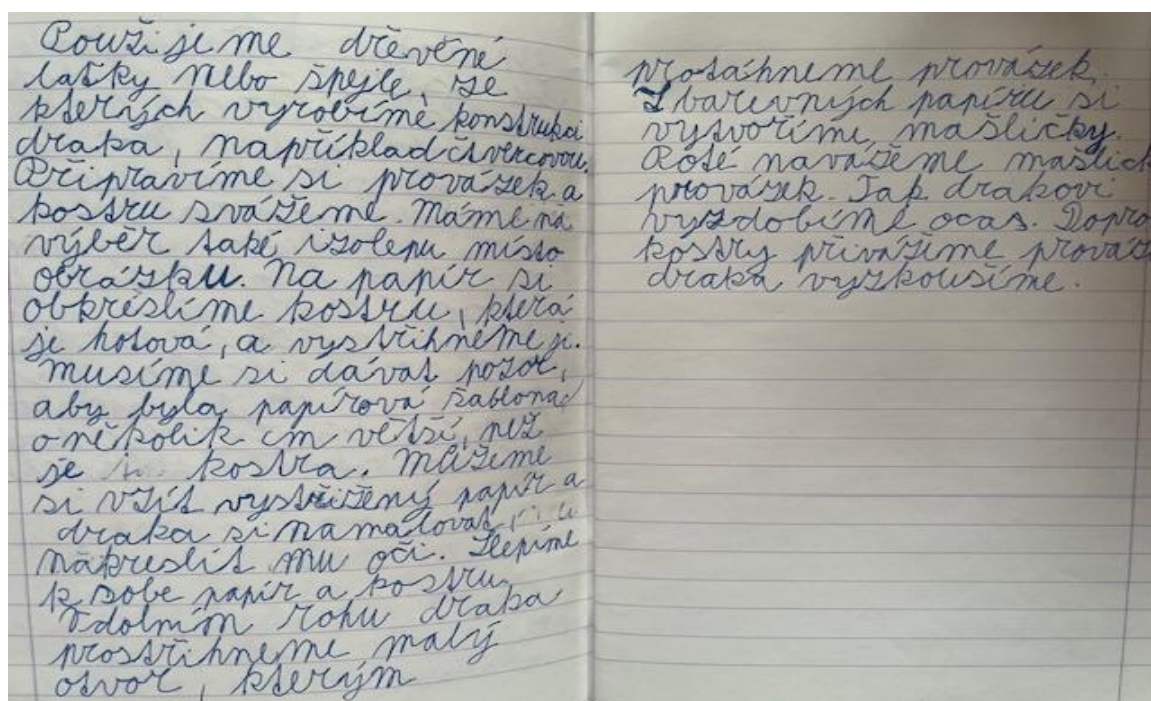 Použijeme dřevěné
laťky nebo špejle, ze
kterých vyrobíme konstrukci
draka, například čtvercovou.
Připravíme si provázek a
kostru svážeme. Máme na
výběr také izolepu místo
obrázku. Na papír si
obkreslíme kostru, která
je hotová, a vystřihneme ji.
Musíme si dávat pozor,
aby byla papírová šablona
o několik cm větší, než
je kostra. Můžeme
si vzít vystřižený papír a
draka si namalovat
nakreslit mu oči. Slepíme
k sobe papír a kostru
V dolním rohu draka
prostřihneme malý
otvor, kterým
protáhneme provázek.
Z barevných papíru si
vytvoříme, mašličky.
Poté navážeme mašlič
provázek. Tak drakovi
vyzdobíme ocas. Dopro
kostry přivážíme prováz
draka vyzkoušíme.